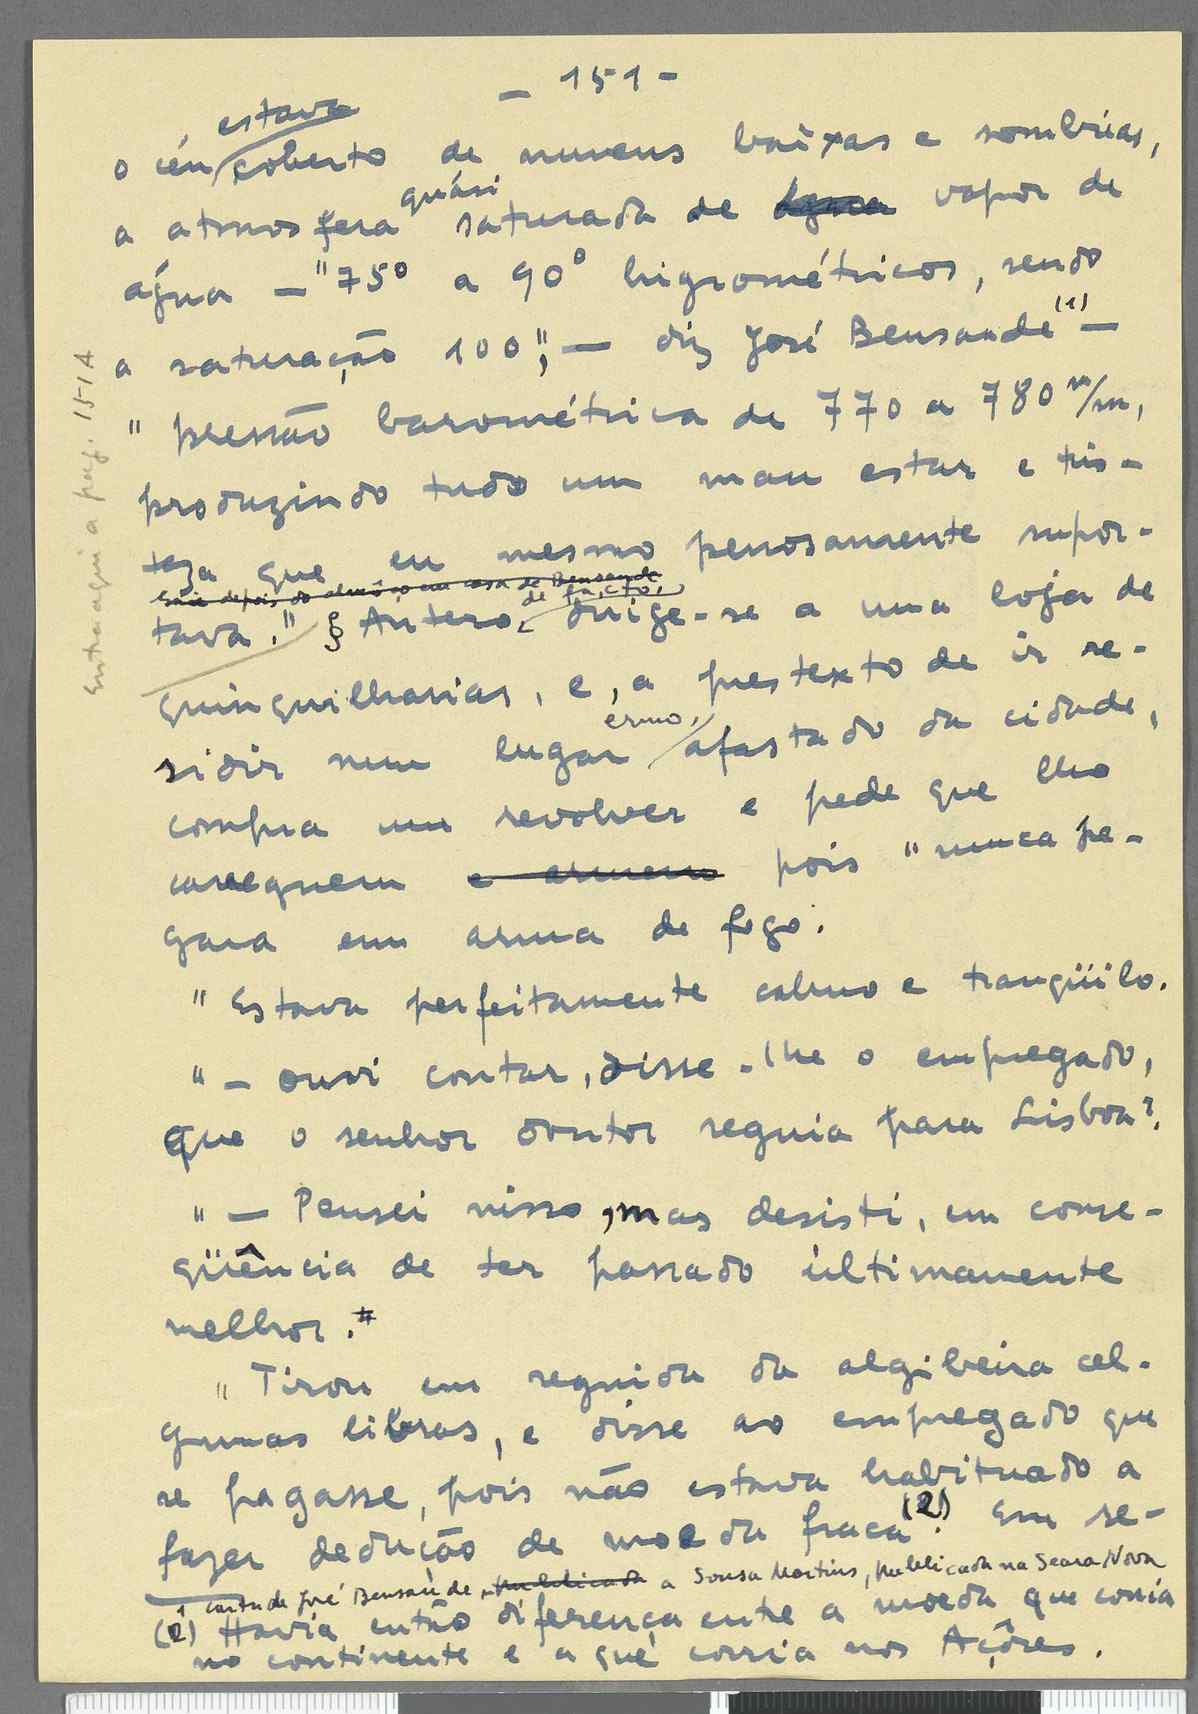 - 151 -
estava
o céu coberto de nuvens baixas e sombrias,
quási
a atmosfera saturada de água vapor de
água - "75º a 90º higrométricos, sendo
a saturação 100", - diz José Bensaude (1) -
" pressão barométrica de 770 a 780 m/m,
produzindo tudo um mau estar e tris-
teza que eu mesmo penosamente supor-
Saíu depois do almôço em casa de Bensaude
de facto,
tava." § Antero dirige-se a uma loja de
quinquilharias, e, a prestexto de ir re-
ermo,
sidir num lugar afastado da cidade,
compra um revolver e pede que lho
carreguem e armem pois "nunca pe-
gara em arma de fogo.
" Estava perfeitamente calmo e tranqüilo.
" - Ouvi contar, disse-lhe o empregado,
que o senhor doutor seguia para Lisboa?
" - Pensei nisso, mas desisti, em conse-
qüência de ter passado ùltimamente
melhor."
" Tirou em seguida da algibeira al-
gumas libras, e disse ao empregado que
se pagasse, pois não estava habituado a
fazer dedução de moeda fraca (2). Em se-
1 carta de José Bensaúde, publicada a Sousa Martins, publicada na Seara Nova
(2) Havia então diferença entre a moeda que corria
no continente e a que corria nos Açôres.
Entra aqui a pag. 151A